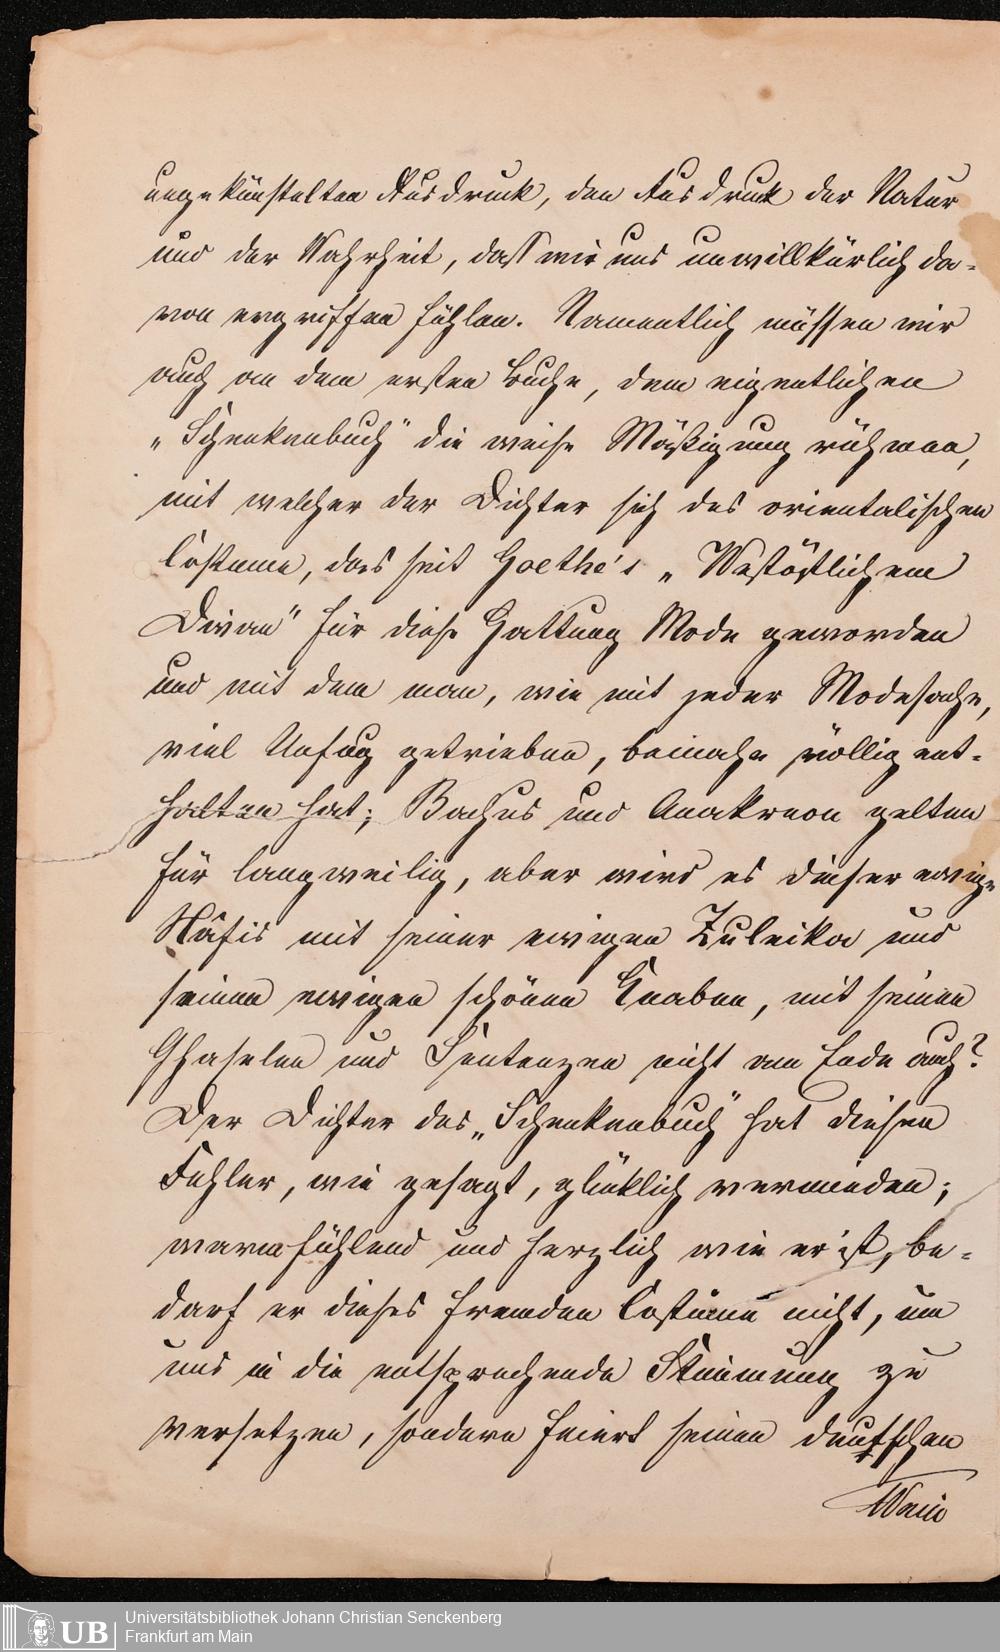 ungekünstelten Ausdruck, den Ausdruck der Natur
und der Wahrheit, dass wir uns unwillkürlich da-
von ergriffen fühlen. Namentlich müssen wir
auch an dem ersten Buche, dem eigentlichen
„Schenkenbuch" die weise Mäßigung rühmen,
mit welcher der Dichter sich des orientalischen
Costums, das seit Goethe's „Westöstlichem
Divan" für diese Gattung Mode geworden
und mit dem man, wie mit jeder Modesache,
viel Unfug getrieben, beinahe völlig ent-
halten hat; Bachus und Anakreon gelten
für langweilig, aber wird es dieser ewige
Hâfis mit seiner ewigen Zuleika und
seinen ewigen schönen Knaben, mit seinen
Ghaselen und Sentenzen nicht am Ende auch?
Der Dichter des „Schenkenbuch" hat diesen
Fehler, wie gesagt, glücklich vermieden;
warmfühlend und herzlich wie er ist, be-
darf er dieses fremden Costüms nicht, um
uns in die entsprechende Stimmung zu
versetzen, sondern feiert seinen deutschen
Wein
Universitätsbibliothek Johann Christian Senckenberg
UB Frankfurt am Main